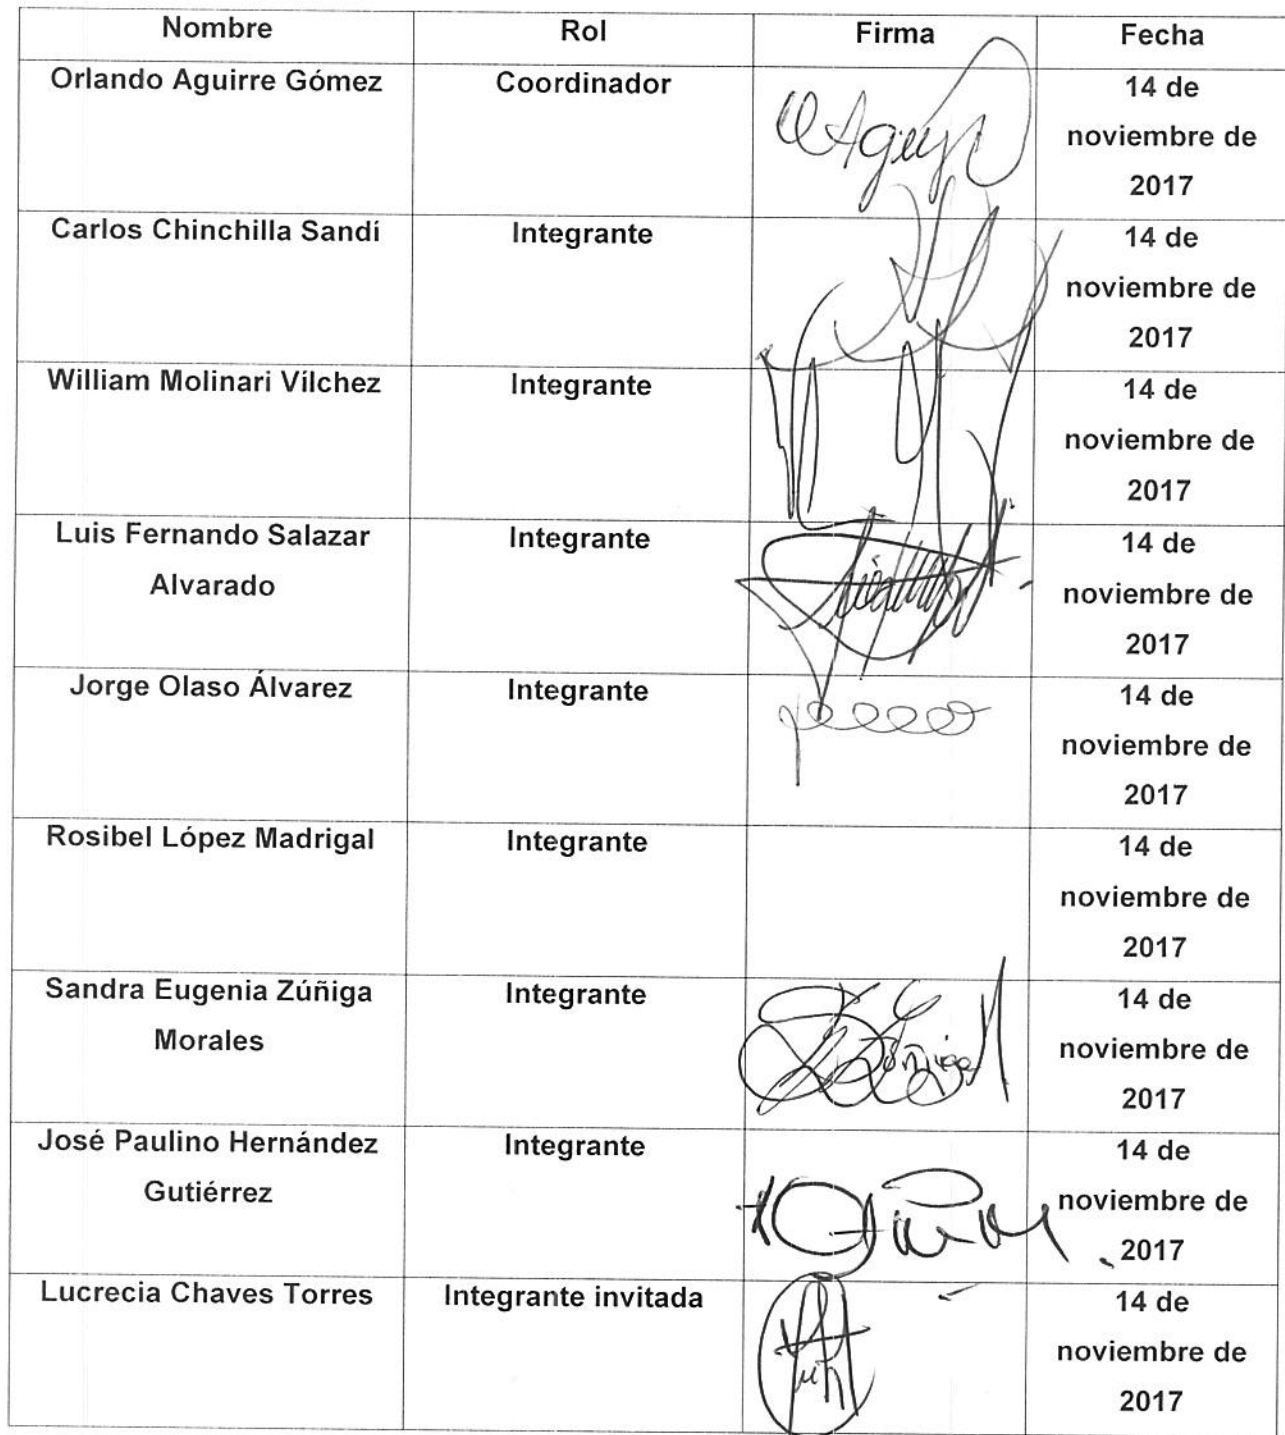 Nombre Rol Firma Fecha
Orlando Aguirre Gómez Coordinador 14 de
noviembre de
2017
Carlos Chinchilla Sandí Integrante 14 de
noviembre de
2017
William Molinari Vílchez Integrante 14 de
noviembre de
2017
Luis Fernando Salazar Integrante 14 de
Alvarado noviembre de
2017
Jorge Olaso Álvarez Integrante 14 de
noviembre de
2017
Rosibel López Madrigal Integrante 14 de
noviembre de
2017
Sandra Eugenia Zúñiga Integrante 14 de
Morales noviembre de
2017
José Paulino Hernández Integrante 14 de
Gutiérrez noviembre de
2017
Lucrecia Chaves Torres Integrante invitada 14 de
noviembre de
2017